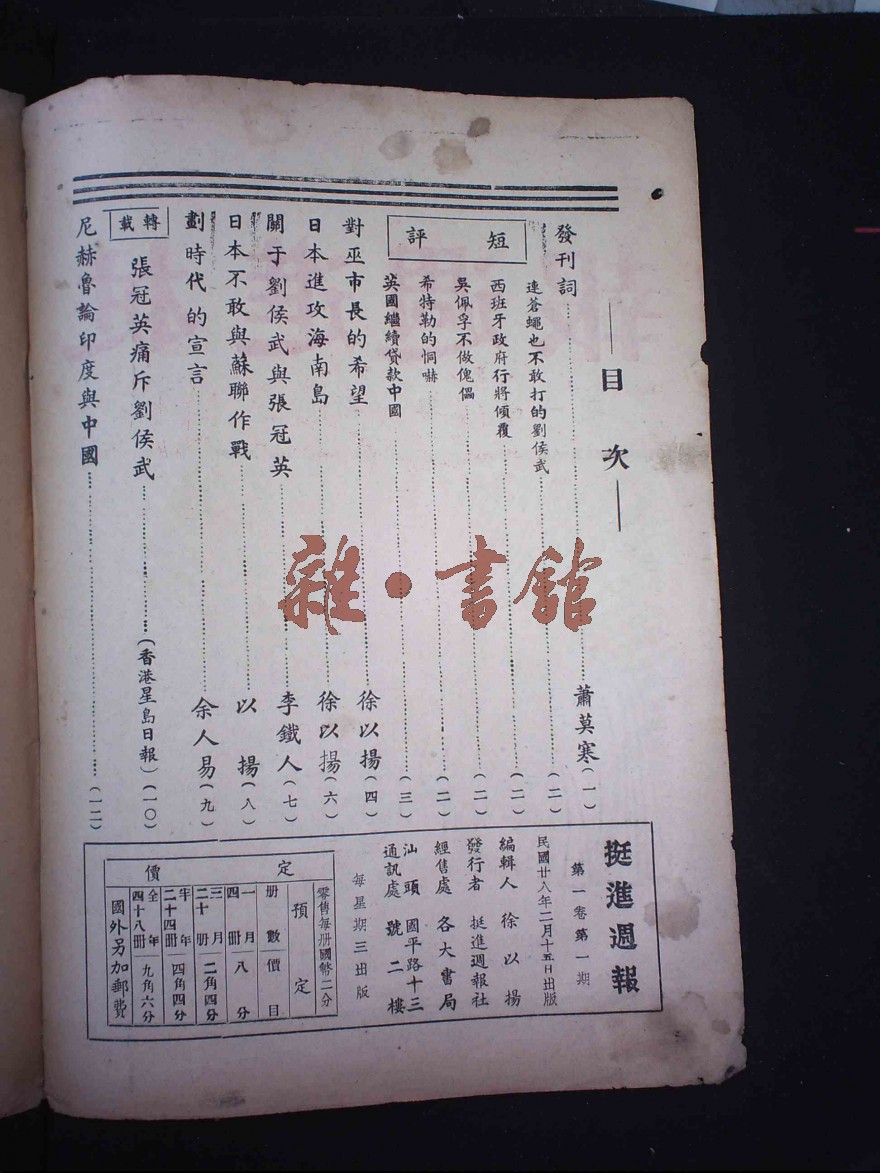 目次
發刊詞……蕭莫寒(一)
短評
連蒼蠅也不敢打的劉侯武……(二)
西班牙政府行將傾覆……(二)
吳佩孚不做傀儡……(二)
希特勒的恫嚇……(二)
英國繼續貸款中國……(三)
對巫市長的希望……徐以揚(四)
日本進攻海南島……徐以揚(六)
關于劉侯武與張冠英……李鐵人(七)
日本不敢與蘇聯作戰……以揚(八)
劃時代的宣言……余人易(九)
轉載
張冠英痛斥劉侯武……(香港星島日報)(一〇)
尼赫魯論印度與中國……(一二)
挺進週報
第一卷第一期
民國廿八年二月十五日出版
編輯人 徐以揚
發行者 挺進週報社
經售處 各大書局
通訊處 汕頭國平路十三號二樓
每星期三出版
定價
零售每册國幣二分
預定
册數 價目
一月 四册 八分
三月 二十册 二角四分
半年 二十四册 四角四分
全年 四十八册 九角六分
國外另加郵費
雜·書館